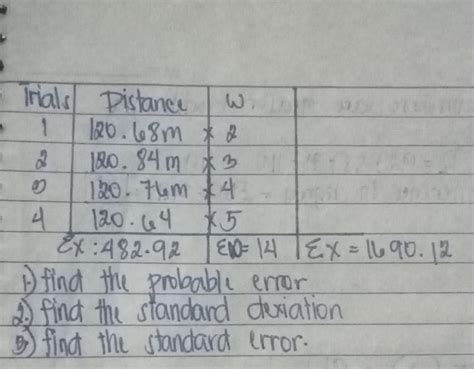 Trials Distance W
1 120.68m x 2
2 120.84m x 3
3 120.76m x 4
4 120.64 x 5
Σx: 482.92 Σw= 14 Σx = 1690.12
1.) find the probable error
2.) find the standard deviation
3) find the standard error.